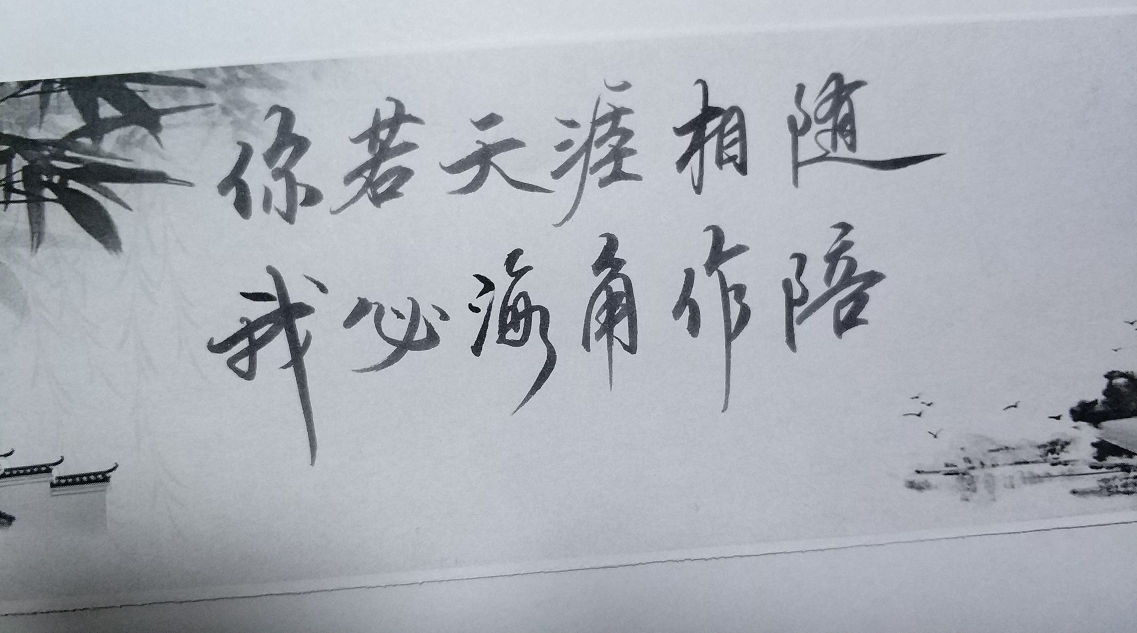 你若天涯相随
我必海角作陪